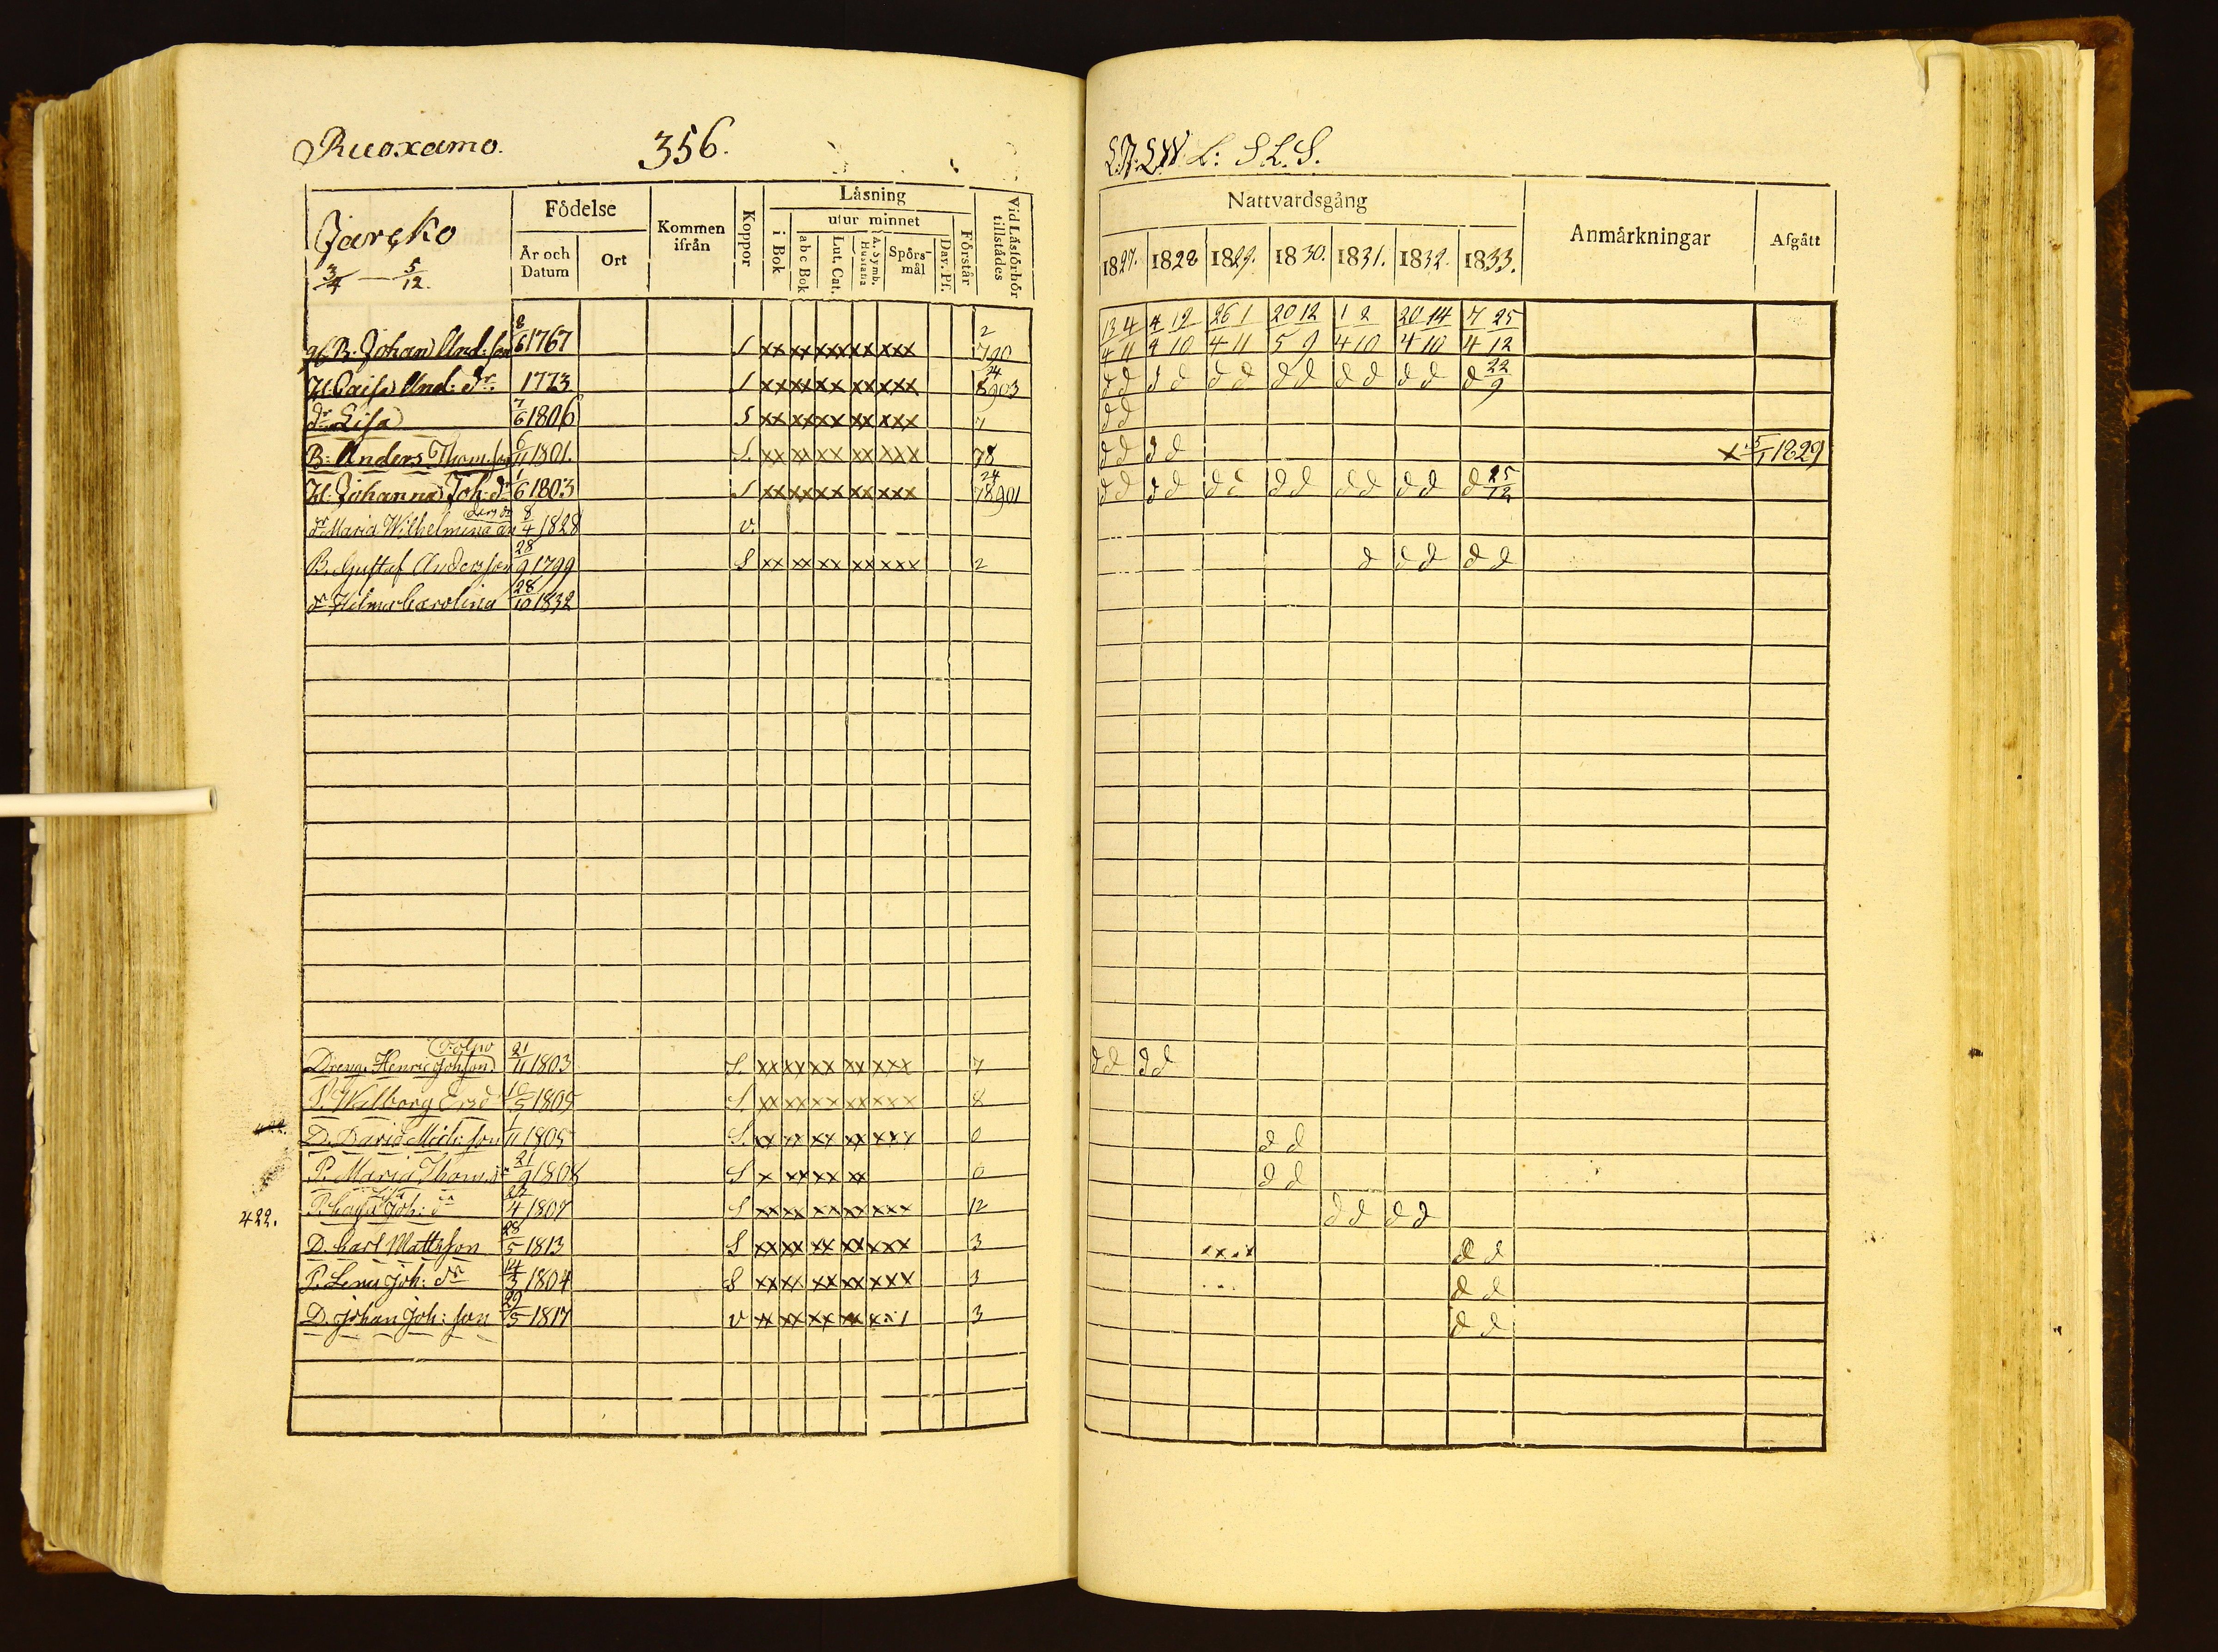 Ruoxamo. 356.
Jaręko
3/4 — 5/12.
Födelse
År och Datum
Ort
Kommen ifrån
Koppor
Läsning
i Bok
utur minnet
a b c Bok
Lut. Cat.
A. Symb. Hustafla
Spörsmål
Dav. Ps.
Förstår
Vid Läsförhör tillstädes
B. Johan And: son 8/6 1767 S xx xx xx xx xxx 2 790
H. Caisa And: dr. 1773 S xx xx xx xx xxx 24 8903
dr Lisa 7/6 1806 S xx xx xx xx xxx 7
B: Anders Thom. son 6/11 1801. S. xx xx xx xx xxx 78
H. Johanna Joh: dr 6 1803 S xx xx xx xx xxx 24 78901
dr Maria Wilhelmina 8/4 1828 v.
B. Gustaf Andersson 28/9 1799 S xx xx xx xx xxx 2
dr Hilma Carolina 28/10 1832
Dreng Henric Johson 21/11 1803 S. xx xx xx xx xxx 7
P. Walborg Ersd 10/5 1805 S. xx xx xx xx xxx 8
D. David Mich: son 1/11 1805 S. xx xx xx xx xxx 0
P. Maria Thom. dr 21/9 1808 S x xx xx xx 0
422. P. Caisa Joh: dr 22/4 1807 S xx xx xx xx xxx 12
D. Carl Mattsson 28/5 1813 S xx xx xx xx xxx 3
P. Lena Joh: dr 14/3 1804 S xx xx xx xx xxx 3
D. Johan Joh: son 29/5 1817 v xx xx xx xx 3
L: S L. S.
Nattvardsgång
Anmärkningar
Afgått
1827. 1828 1829. 1830. 1831. 1832. 1833.
13 4 4 12 26 1 20 12 1 2 20 14 7 25
4 11 4 10 4 11 5 9 4 10 4 10 4 12
d d d d d d d d d d d d d 22/9
d d
d d d d x 5/1 1829
d d d d d d d d d d d d d 25/12
d d d d d
d d d d
d d
d d
d d d d
d d
d d
d d